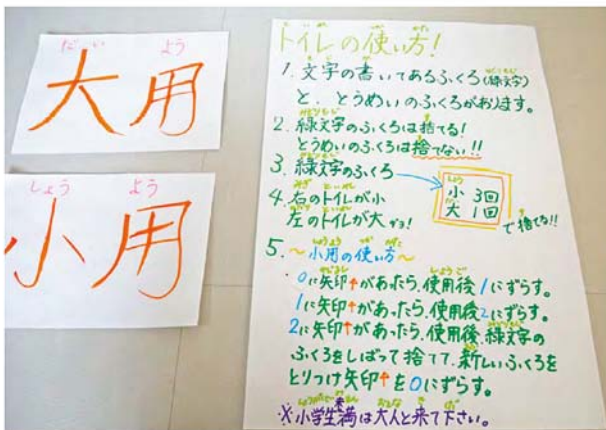 だい よう
大用
しょう よう
小用
トイレの使い方!
1. 文字の書いてあるふくろ(緑文字)
と、とうめいのふくろがあります。
2. 緑文字のふくろは捨てる!
とうめいのふくろは捨てない!!
3. 緑文字のふくろ→
小 3回
大 1回
で捨てる!!
4. 右のトイレが小
左のトイレが大
5. ~小用の使い方~
0に矢印↑があったら、使用後1にずらす。
1に矢印↑があったら、使用後2にずらす。
2に矢印↑があったら、使用後、緑文字の
ふくろをしばって捨てて、新しいふくろを
とりつけ矢印↑を0にずらす。
※小学生未満は大人と来て下さい。